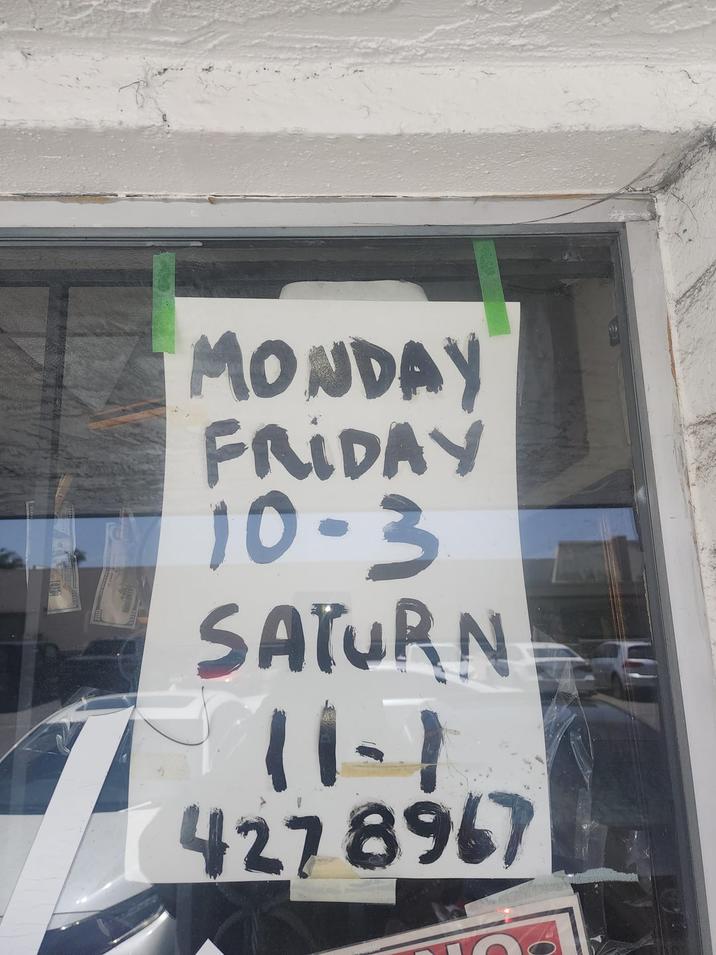 MONDAY
FRIDAY
10-3
SATURN
11-1
427 8967
NO